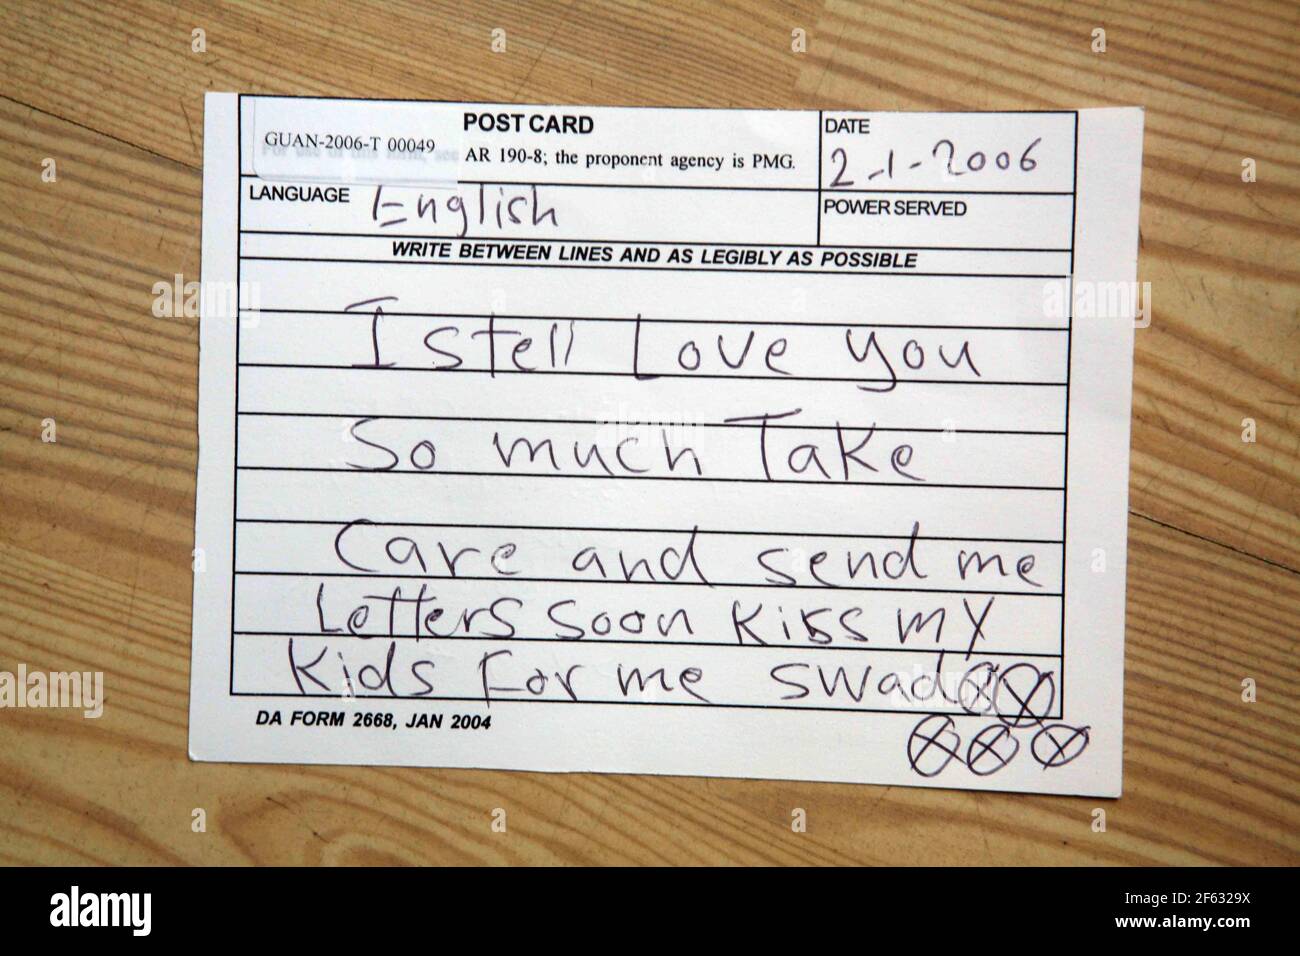 GUAN-2006-T 00049
POST CARD
AR 190-8; the proponent agency is PMG.
DATE
2-1-2006
LANGUAGE English
POWER SERVED
WRITE BETWEEN LINES AND AS LEGIBLY AS POSSIBLE
I stell Love you
So much Take
Care and send me
Letters soon Kiss my
Kids For me swad
DA FORM 2668, JAN 2004
alamy
Image ID: 2F6329X
www.alamy.com